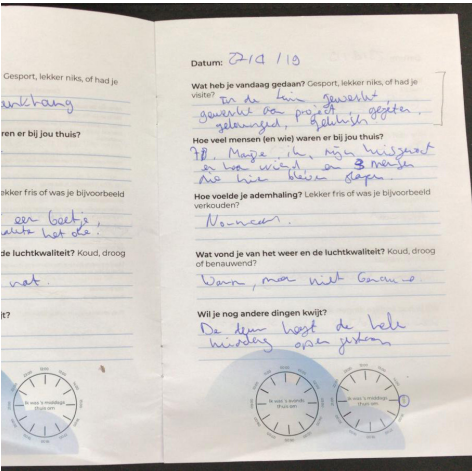 Gesport, lekker niks, of had je
ren er bij jou thuis?
ekker fris of was je bijvoorbeeld
een beetje,
de luchtkwaliteit? Koud, droog
nat.
jt?
Ik was 's middags
thuis om
Datum: /19
Wat heb je vandaag gedaan? Gesport, lekker niks, of had je
visite? In de tuin gewerkt,
gewerkt aan project, gegeten,
Hoe veel mensen (en wie) waren er bij jou thuis?
ik, mijn huisgenoot
en haar vriend en 3 mensen
die hier bleven slapen.
Hoe voelde je ademhaling? Lekker fris of was je bijvoorbeeld
verkouden?
Normaal.
Wat vond je van het weer en de luchtkwaliteit? Koud, droog
of benauwend?
Warm, maar niet benauwd.
Wil je nog andere dingen kwijt?
De deur heeft de hele
middag open gestaan
Ik was 's avonds
thuis om
Ik was 's middags
thuis om